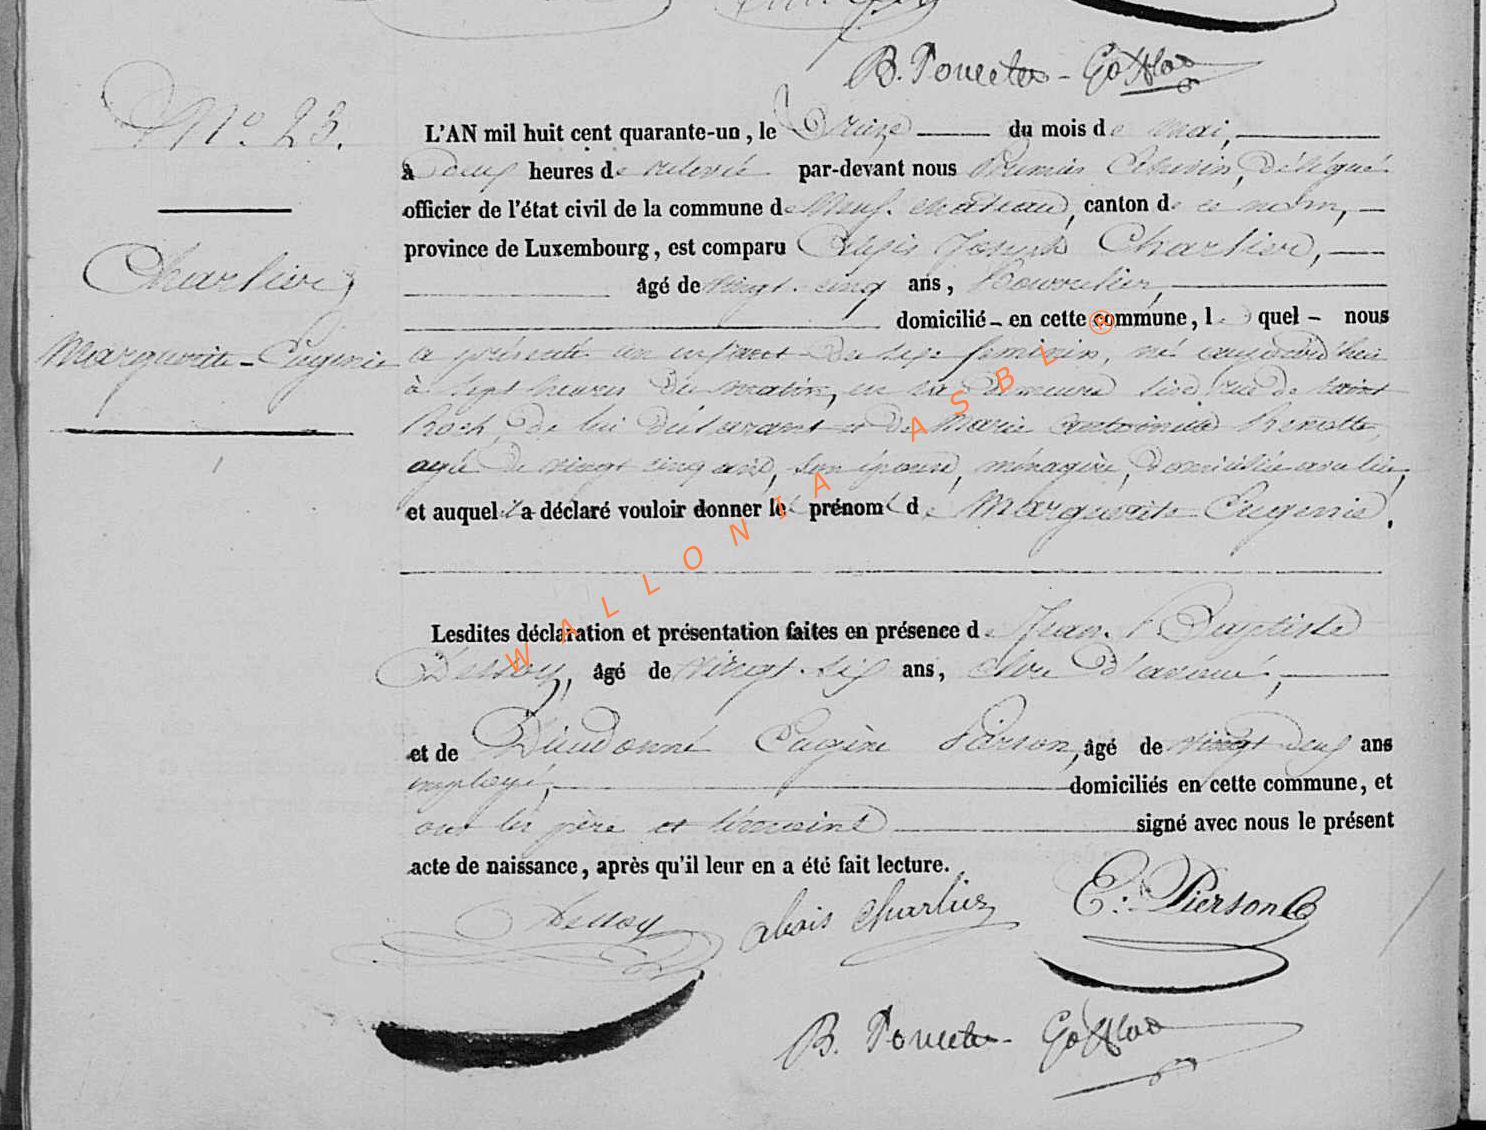 B. Poncelet - Gofflot
No. 23.
L'AN mil huit cent quarante-un, le treize du mois de mai,
à deux heures de relevée par-devant nous Premier Echevin, délégué
officier de l'état civil de la commune de Neufchateau, canton de ce nom,
province de Luxembourg, est comparu Joseph Chartier,
Chartier
âgé de vingt-cinq ans,
domicilié en cette commune, lequel nous
Marguerite-Eugenie
a présenté un enfant du sexe feminin, né aujourd'hui
à sept heures du matin, en sa demeure sise rue de Saint
Roch, de lui déclarant et de Marie antoinette
agée de vingt cinq ans, son épouse, ménagère, domiciliée avec lui,
et auquel il a déclaré vouloir donner le prénom de Marguerite-Eugenie.
Lesdites déclaration et présentation faites en présence de Jean-Baptiste
Dessoy, âgé de vingt-six ans, clerc d'avoué,
et de Dieudonné Eugène Pierson, âgé de vingt deux ans
employé, domiciliés en cette commune, et
ont les père et témoins signé avec nous le présent
acte de naissance, après qu'il leur en a été fait lecture.
Dessoy
alois Charlier
E. Pierson
B. Poncelet - Gofflot
WALLONIA ASBL ®